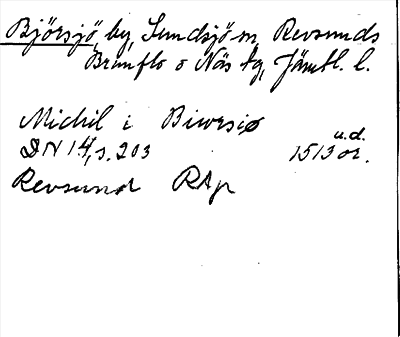 Björsjö, by, Sundsjö sn, Revsunds
Brunflo o Näs tg, Jämtl. l.
Michil i Biwrsiø
u.d.
DN 14, s. 203 1513 or.
Revsund RAp